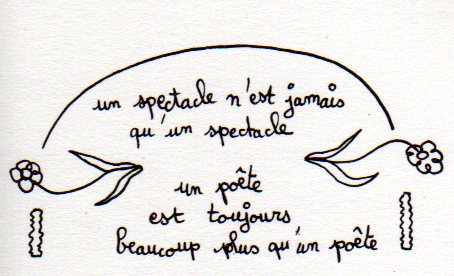 un spectacle n'est jamais
qu'un spectacle
un poête
est toujours
beaucoup plus qu'un poête